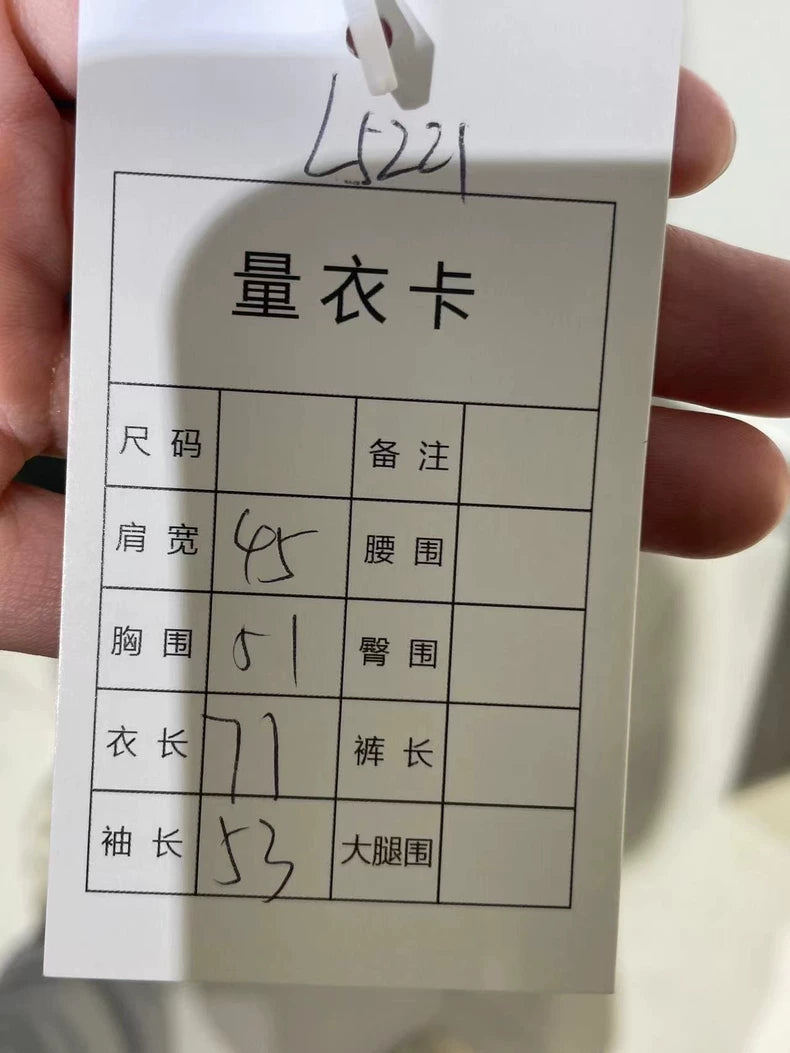 L5221
量衣卡
尺码 备注
肩宽 45 腰围
胸围 51 臀围
衣长 71 裤长
袖长 53 大腿围